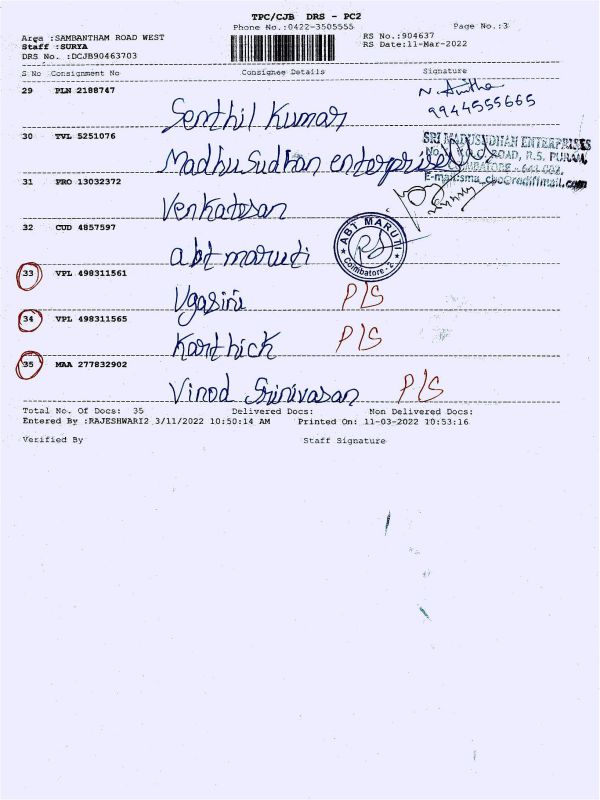 TPC/CJB DRS - PC2
Phone No.:0422-3505555
Page No.:3
Area :SAMBANTHAM ROAD WEST
Staff :SURYA
DRS No. :DCJB90463703
RS No.:904637
RS Date:11-Mar-2022
S No Consignment No Consignee Details Signature
29 PLN 2188747
Senthil Kumar
N. Anitha
9944555665
30 TVL 5251076
Madhu Sudhan enterprises
SRI MADUSUDHAN ENTERPRISES
ROAD, R.S. PURAM,
COIMBATORE - 641 002.
31 PRO 13032372
Venkatesan
32 CUD 4857597
abt maruti
ABT MARUTI
Coimbatore - 2
33 VPL 498311561
Ugasini P/S
34 VPL 498311565
Karthick P/S
35 MAA 277832902
Vinod Srinivasan P/S
Total No. Of Docs: 35 Delivered Docs: Non Delivered Docs:
Entered By :RAJESHWARI2 3/11/2022 10:50:14 AM Printed On: 11-03-2022 10:53:16
Verified By Staff Signature